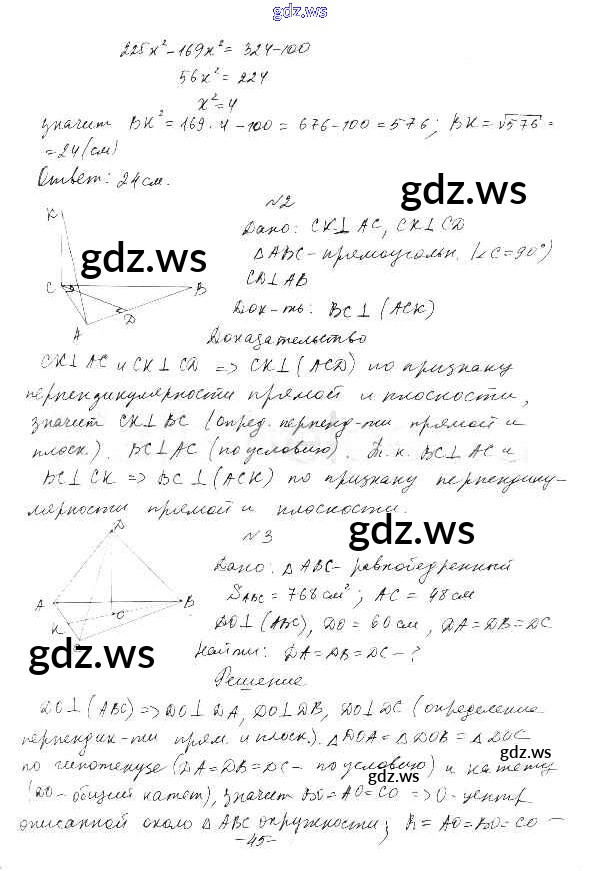 gdz.ws
225x² − 169x² = 324 − 100
56x² = 224
x² = 4
значит BK² = 169 · 4 − 100 = 676 − 100 = 576; BK = √576 =
= 24 (см)
Ответ: 24 см.
gdz.ws
№2
K
Дано: CK⊥AC, CK⊥CD
gdz.ws
△ABC - прямоугольн. (∠C = 90°)
C B
CD⊥AB
D
A
Док-ть: BC⊥(ACK)
Доказательство
CK⊥AC и CK⊥CD => CK⊥(ACD) по признаку
перпендикулярности прямой и плоскости,
значит CK⊥BC (опред. перпенд-ти прямой и
плоск.). BC⊥AC (по условию). Т.к. BC⊥AC и
BC⊥CK => BC⊥(ACK) по признаку перпендику-
лярности прямой и плоскости.
gdz.ws
D
№3
Дано: △ABC - равнобедренный
A B
S_ABC = 768 см²; AC = 48 см
O
K
DO⊥(ABC), DO = 60 см, DA = DB = DC
gdz.ws
Найти: DA = DB = DC - ?
Решение
DO⊥(ABC) => DO⊥DA, DO⊥DB, DO⊥DC (определение
перпендик-ти прям. и плоск.). △DOA = △DOB = △DOC
gdz.ws
по гипотенузе (DA = DB = DC - по условию) и катету
gdz.ws
(DO - общий катет), значит BO = AO = CO => O - центр
описанной около △ABC окружности; R = AO = BO = CO −
-45-
gdz.ws